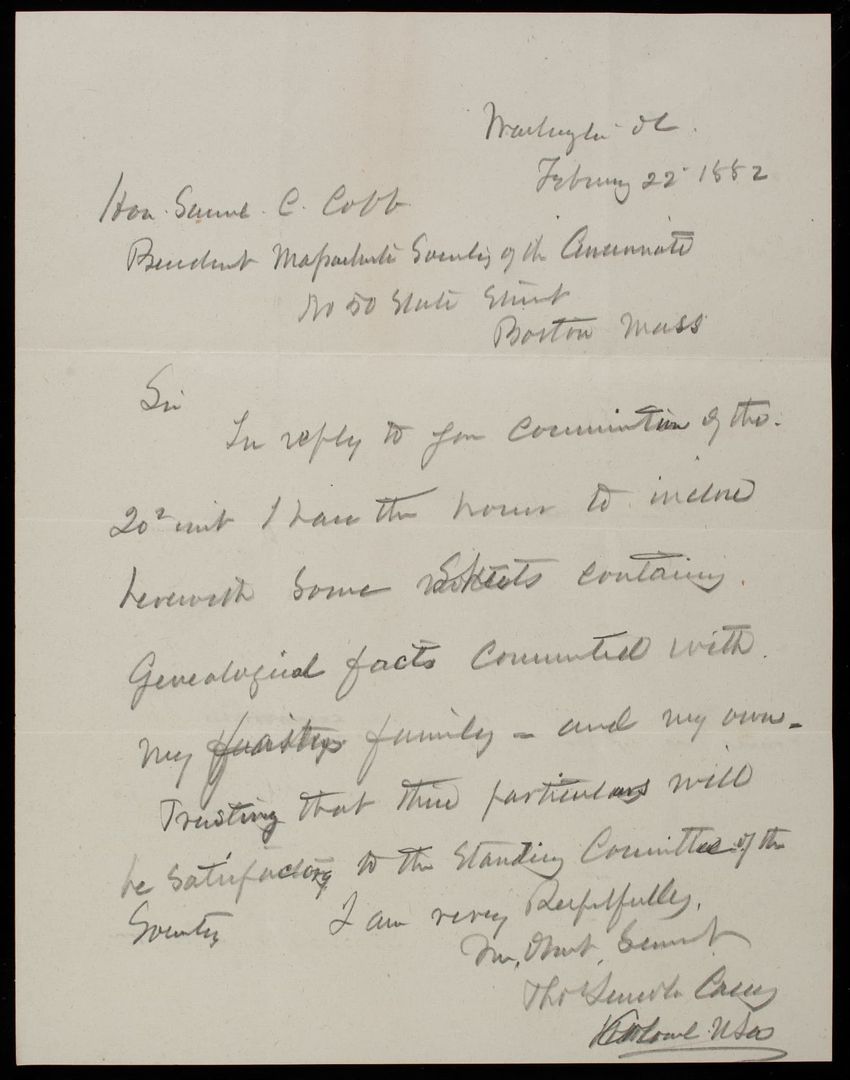 Washington DC.
February 22d 1882
Hon. Samuel C. Cobb
President Massachusetts Society of the Cincinnati
No 50 State Street
Boston Mass
Sir
In reply to your communication of the
20th inst I have the honor to inclose
herewith some sheets containing
Genealogical facts connected with
my family - and my own -
Trusting that these particulars will
be satisfactory to the Standing Committee of the
Society I am very Respectfully,
Your Obdt. Servant
Thos Lincoln Casey
Colonel USA